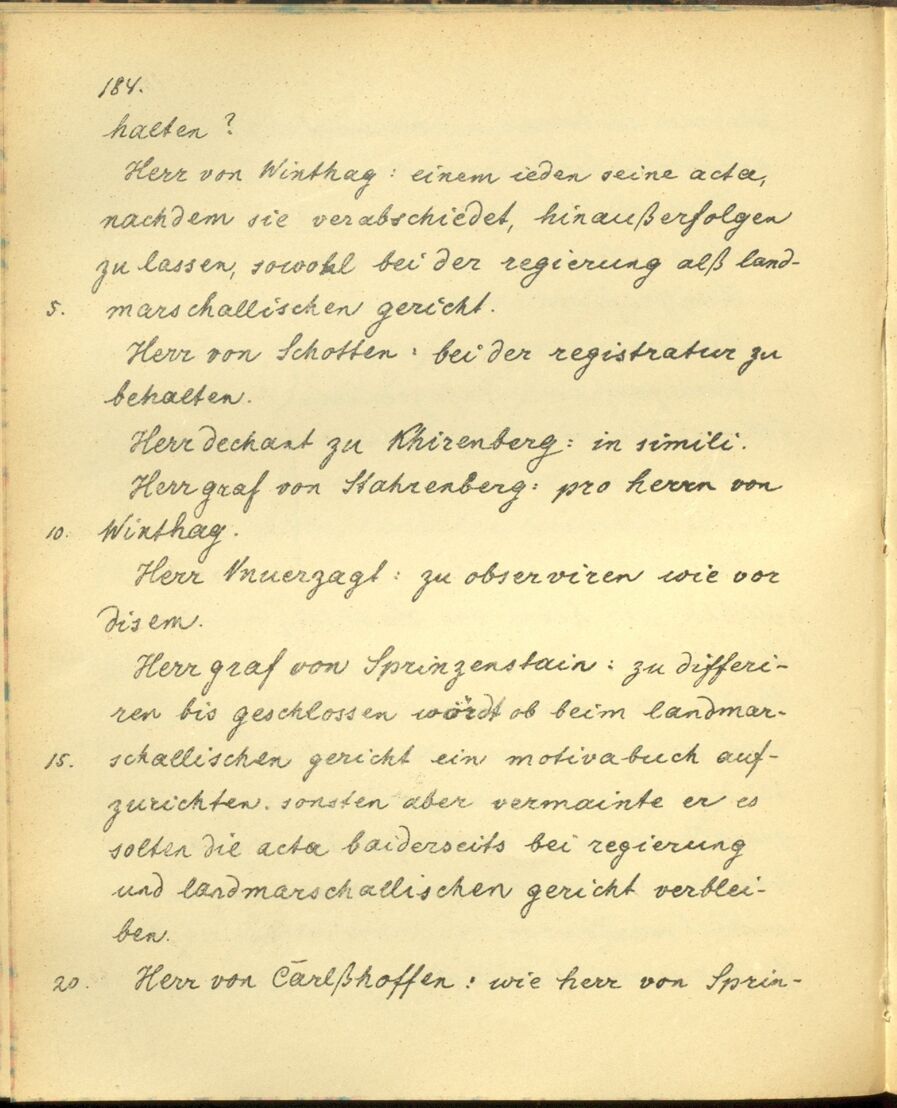 184.
halten?
Herr von Winthag: einem ieden seine acta,
nachdem sie verabschiedet, hinaußerfolgen
zu lassen, sowohl bei der regierung alß land-
5. marschallischen gericht.
Herr von Schotten: bei der registratur zu
behalten.
Herr dechant zu Khirenberg: in simili.
Herr graf von Stahrenberg: pro herrn von
10. Winthag.
Herr Vnuerzagt: zu observiren wie vor
disem.
Herr graf von Sprinzenstain: zu differi-
ren bis geschlossen wördt ob beim landmar-
15. schallischen gericht ein motivabuch auf-
zurichten. sonsten aber vermainte er es
solten die acta baiderseits bei regierung
und landmarschallischen gericht verblei-
ben.
20. Herr von Cārlßhoffen: wie herr von Sprin-